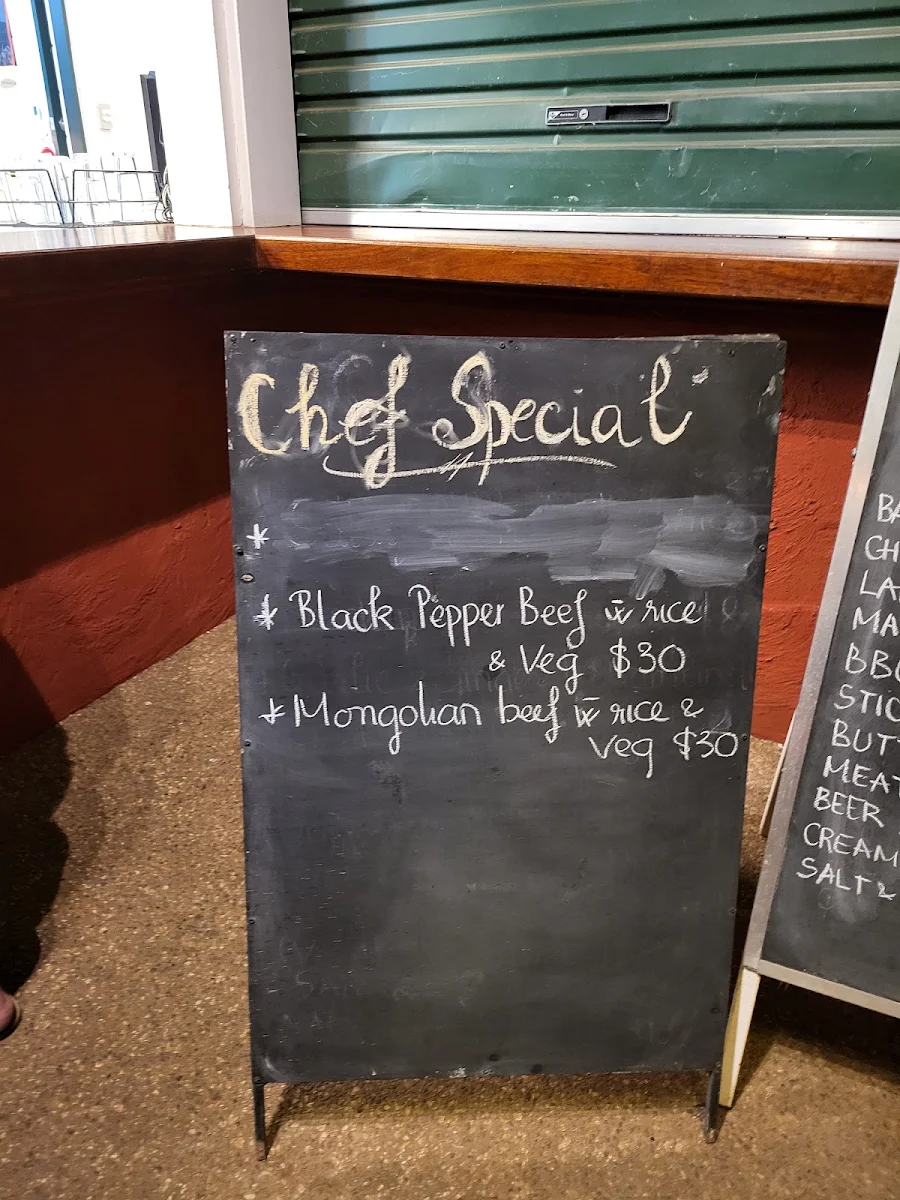 Chef Special
*
* Black Pepper Beef w̄ rice
& Veg $30
* Mongolian beef w̄ rice &
Veg $30
BA
CH
LA
MA
BBQ
STIC
BUTT
MEAT
BEER
CREAM
SALT &